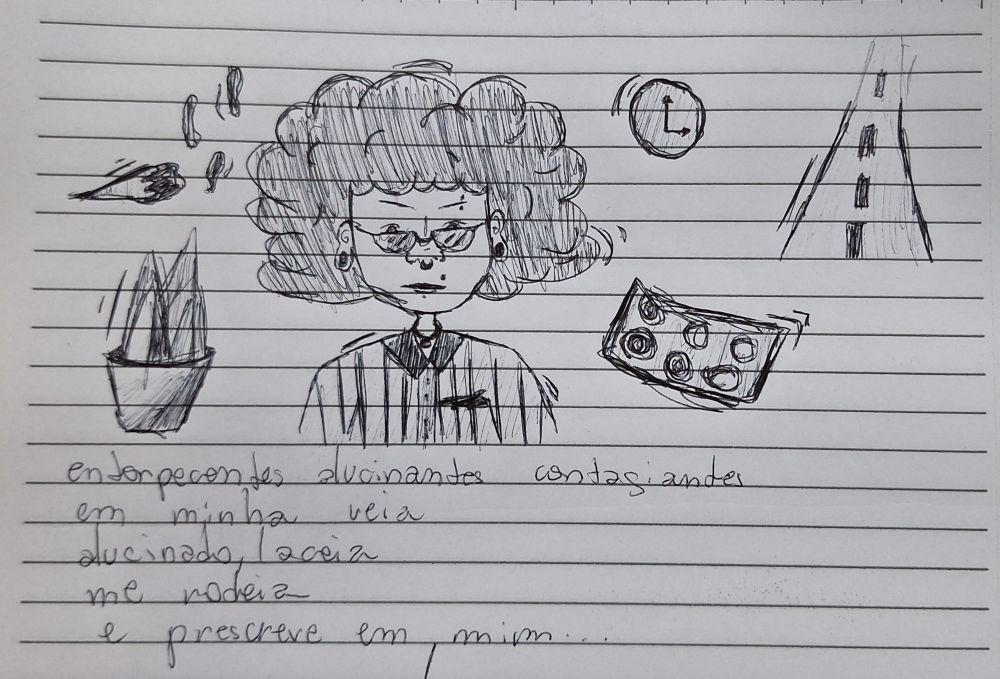 entorpecentes alucinantes contagiantes
em minha veia
alucinado, laceia
me rodeia
e prescreve em mim...